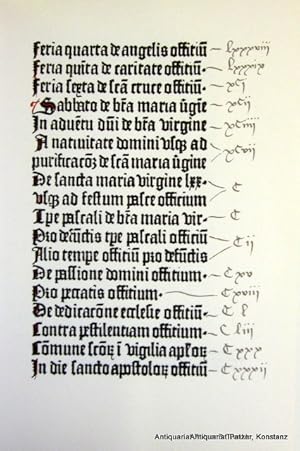 Feria quarta de angelis offitiū· lxxxviii
Feria quīta de caritate offitiū· lxxxix
Feria sexta de scā cruce offitiū· xci
Sabbato de btā maria ṽgīe xcii
In aduētu dn̄i de btā virgine xciiii
A natiuitate domini vsqꝫ ad
purificacōꝫ de scā maria ṽgine xcvii
De sancta maria virgine lxx·
vsqꝫ ad festum pasce officium C
Tp̄e pascali de btā maria vir· C
Pro defūctis tp̄e pascali offitiū
Alio tempe offitiū pro defūctis C ii
De passione domini offitium· C xv
Pro peccatis offitium· C xviii
De dedicacōne ecclesie offitiū C l
Contra pestilentiam offitium· C liii
Cōmune scōꝝ ī vigilia apl'oꝝ C xxx
In die sancto apostoloꝝ offitiū C xxxii
Antiquariat Peter Petrej, Konstanz